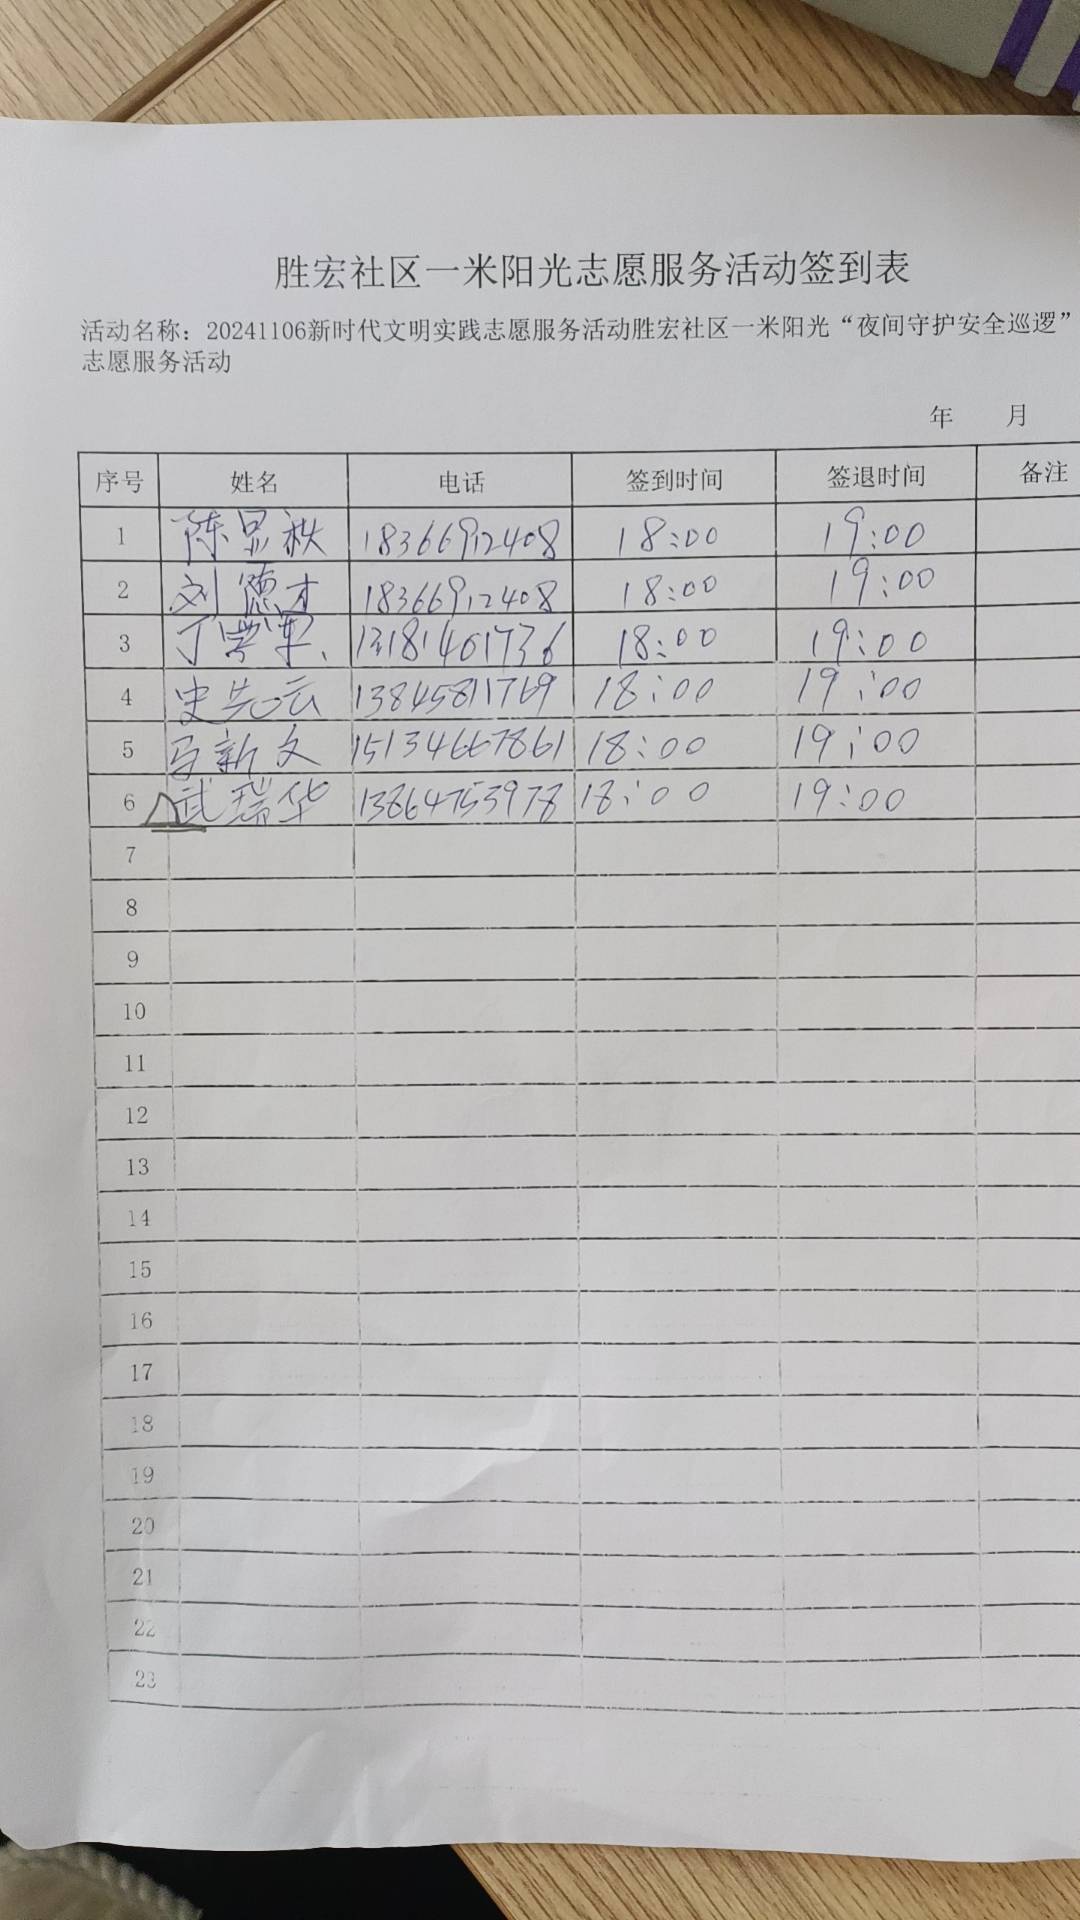 胜宏社区一米阳光志愿服务活动签到表
活动名称：20241106新时代文明实践志愿服务活动胜宏社区一米阳光“夜间守护安全巡逻”
志愿服务活动
年 月
序号 姓名 电话 签到时间 签退时间 备注
1 陈显秋 18366912408 18:00 19:00
2 刘德才 18366912408 18:00 19:00
3 丁 军 13181401736 18:00 19:00
4 史先云 13845811769 18:00 19:00
5 马新文 15134667861 18:00 19:00
6 武瑞华 13864753978 18:00 19:00
7
8
9
10
11
12
13
14
15
16
17
18
19
20
21
22
23